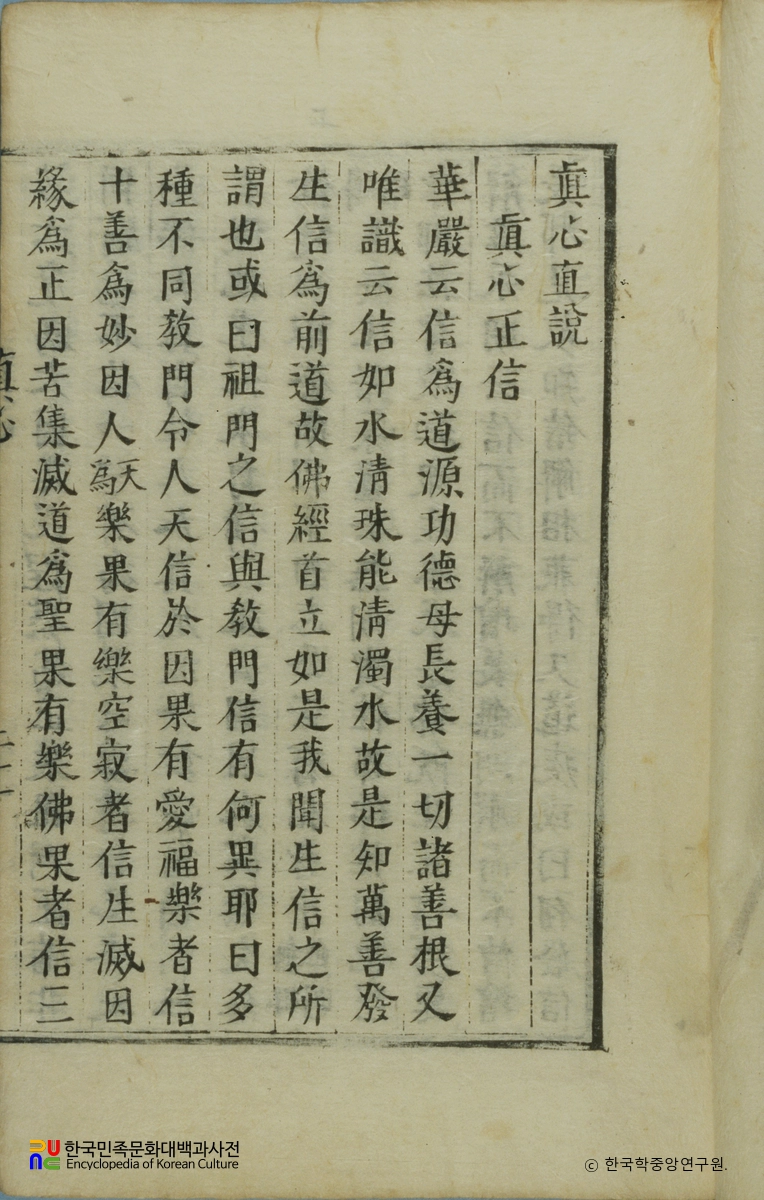 眞心直說
眞心正信
華嚴云信爲道源功德母長養一切諸善根又
唯識云信如水淸珠能淸濁水故是知萬善發
生信爲前道故佛經首立如是我聞生信之所
謂也或曰祖門之信與敎門信有何異耶曰多
種不同敎門令人天信於因果有愛福樂者信
十善爲妙因人天爲樂果有樂空寂者信生滅因
緣爲正因苦集滅道爲聖果有樂佛果者信三
眞心
한국민족문화대백과사전
Encyclopedia of Korean Culture
ⓒ 한국학중앙연구원.